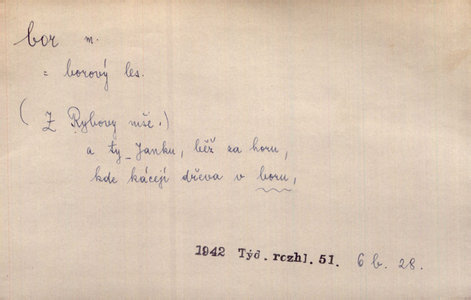 bor m.
= borový les.
(Z Rybovy mše.)
a ty Janku, běž za horu,
kde kácejí dřeva v boru,
1942 Týd. rozhl. 51. 6 b. 28.